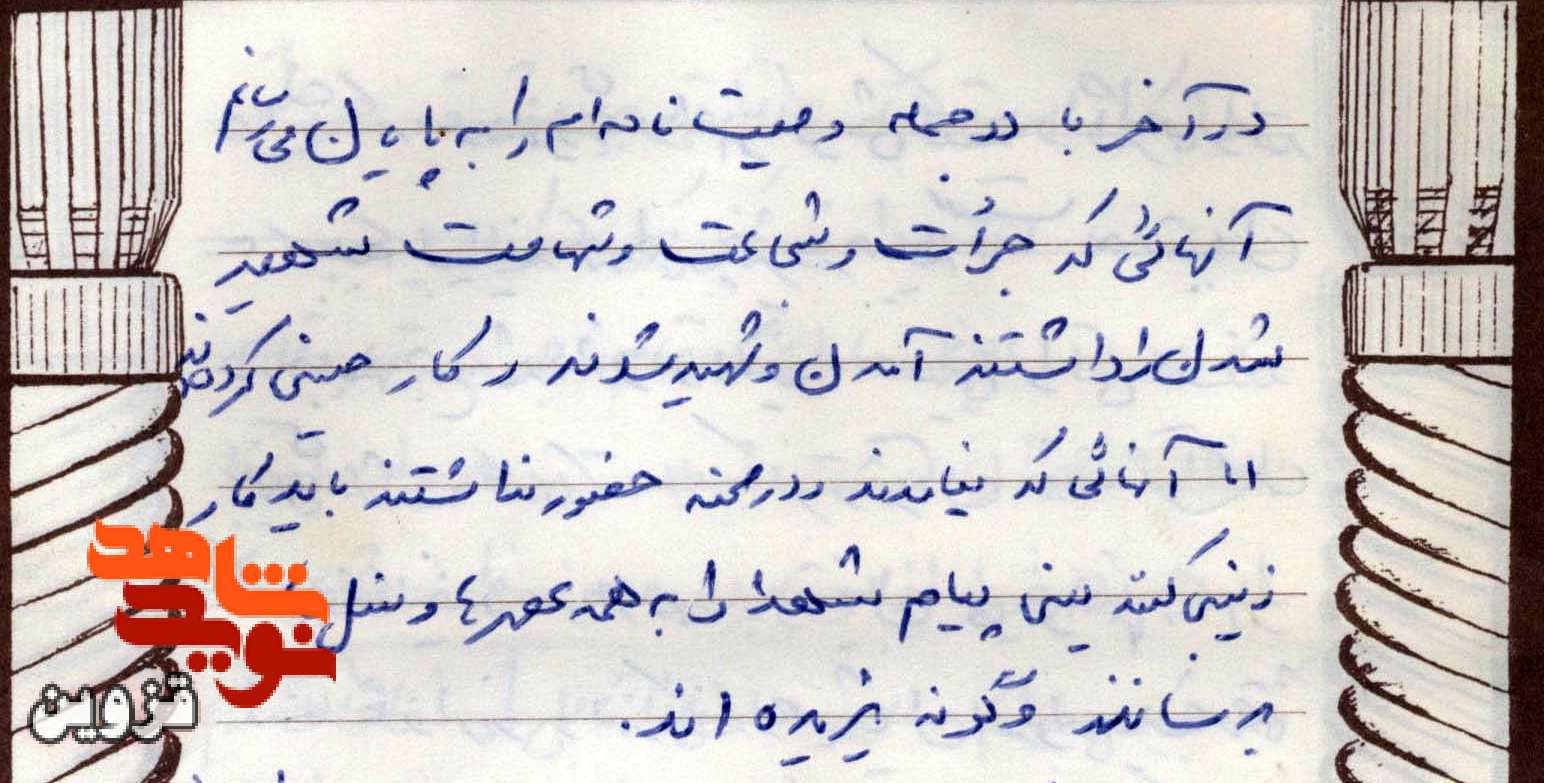 در آخر با دو جمله وصیت نامه ام را به پایان می رسانم
آنهائی که جرأت و شجاعت و شهامت شهید
شدن را داشتند آمدن و شهید شدند و کار حسینی کردند
اما آنهائی که نیامدند و در صحنه حضور نداشتند باید کار
زینبی کنند یعنی پیام شهدا را به همه عصرها و نسل
برسانند وگرنه یزیدی اند.
نوید شاهد
قزوین